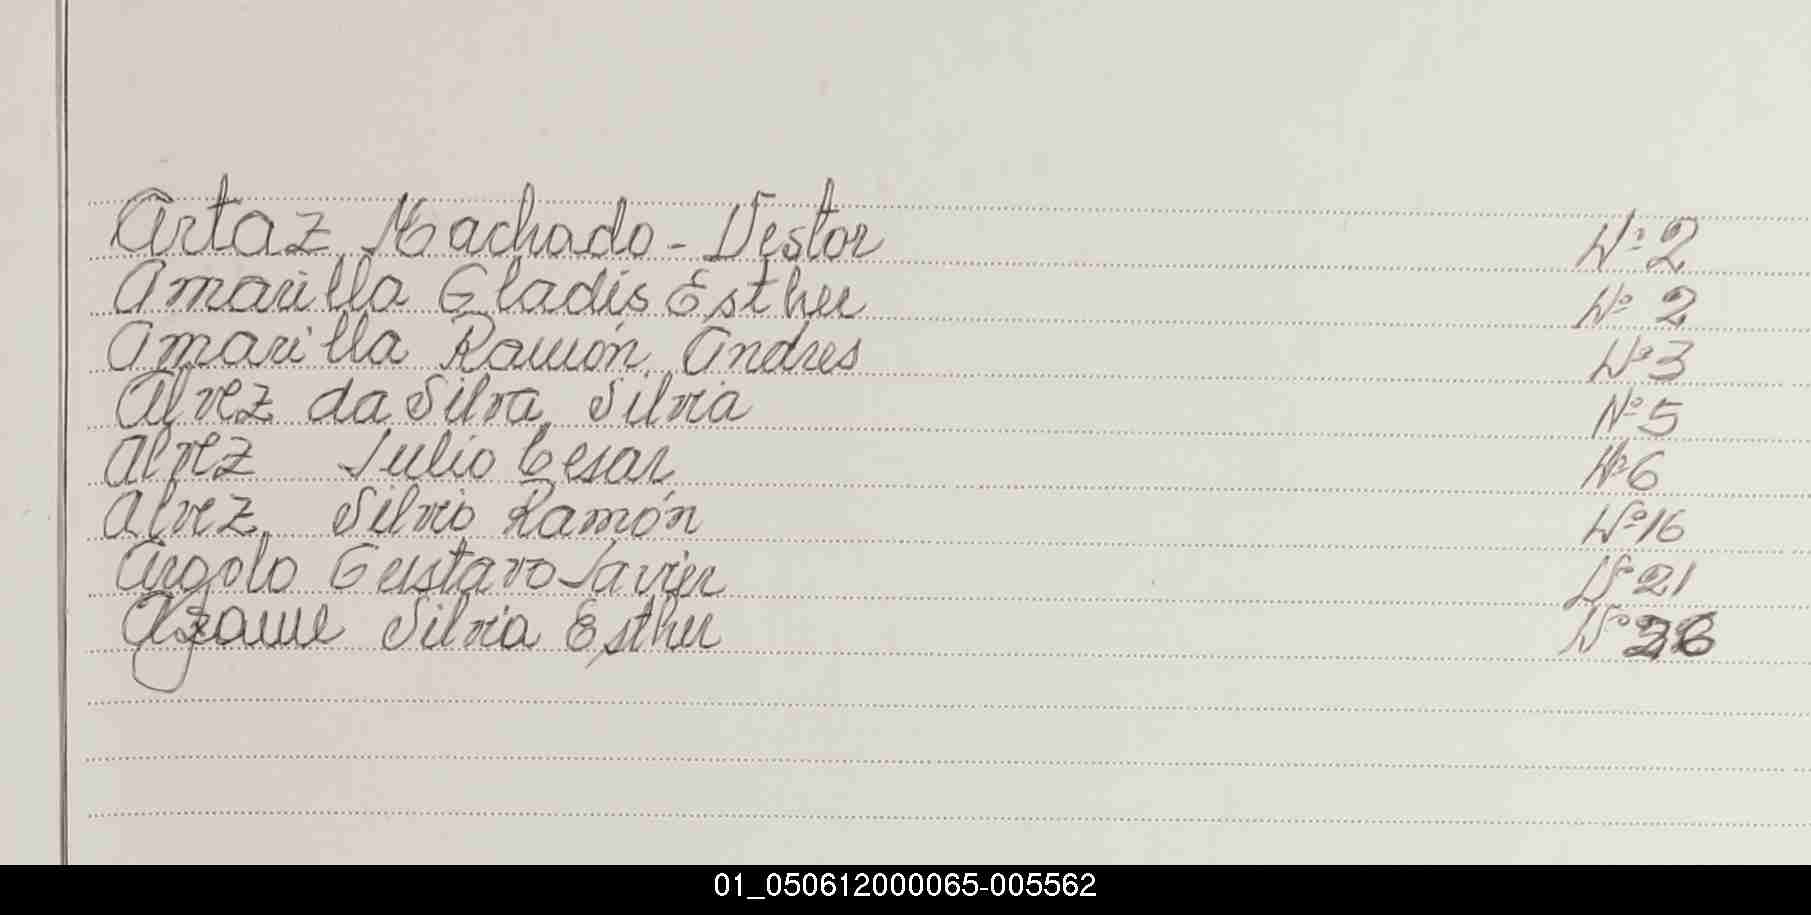 Artaz Machado - Nestor Nº 2
Amarilla Gladis Esther Nº 2
Amarilla Ramón Andres Nº 3
Alvez da Silva Silvia Nº 5
Alvez Julio Cesar Nº 6
Alvez Silvio Ramón Nº 16
Argolo Gustavo Javier Nº 21
Silvia Esther Nº
01_050612000065-005562